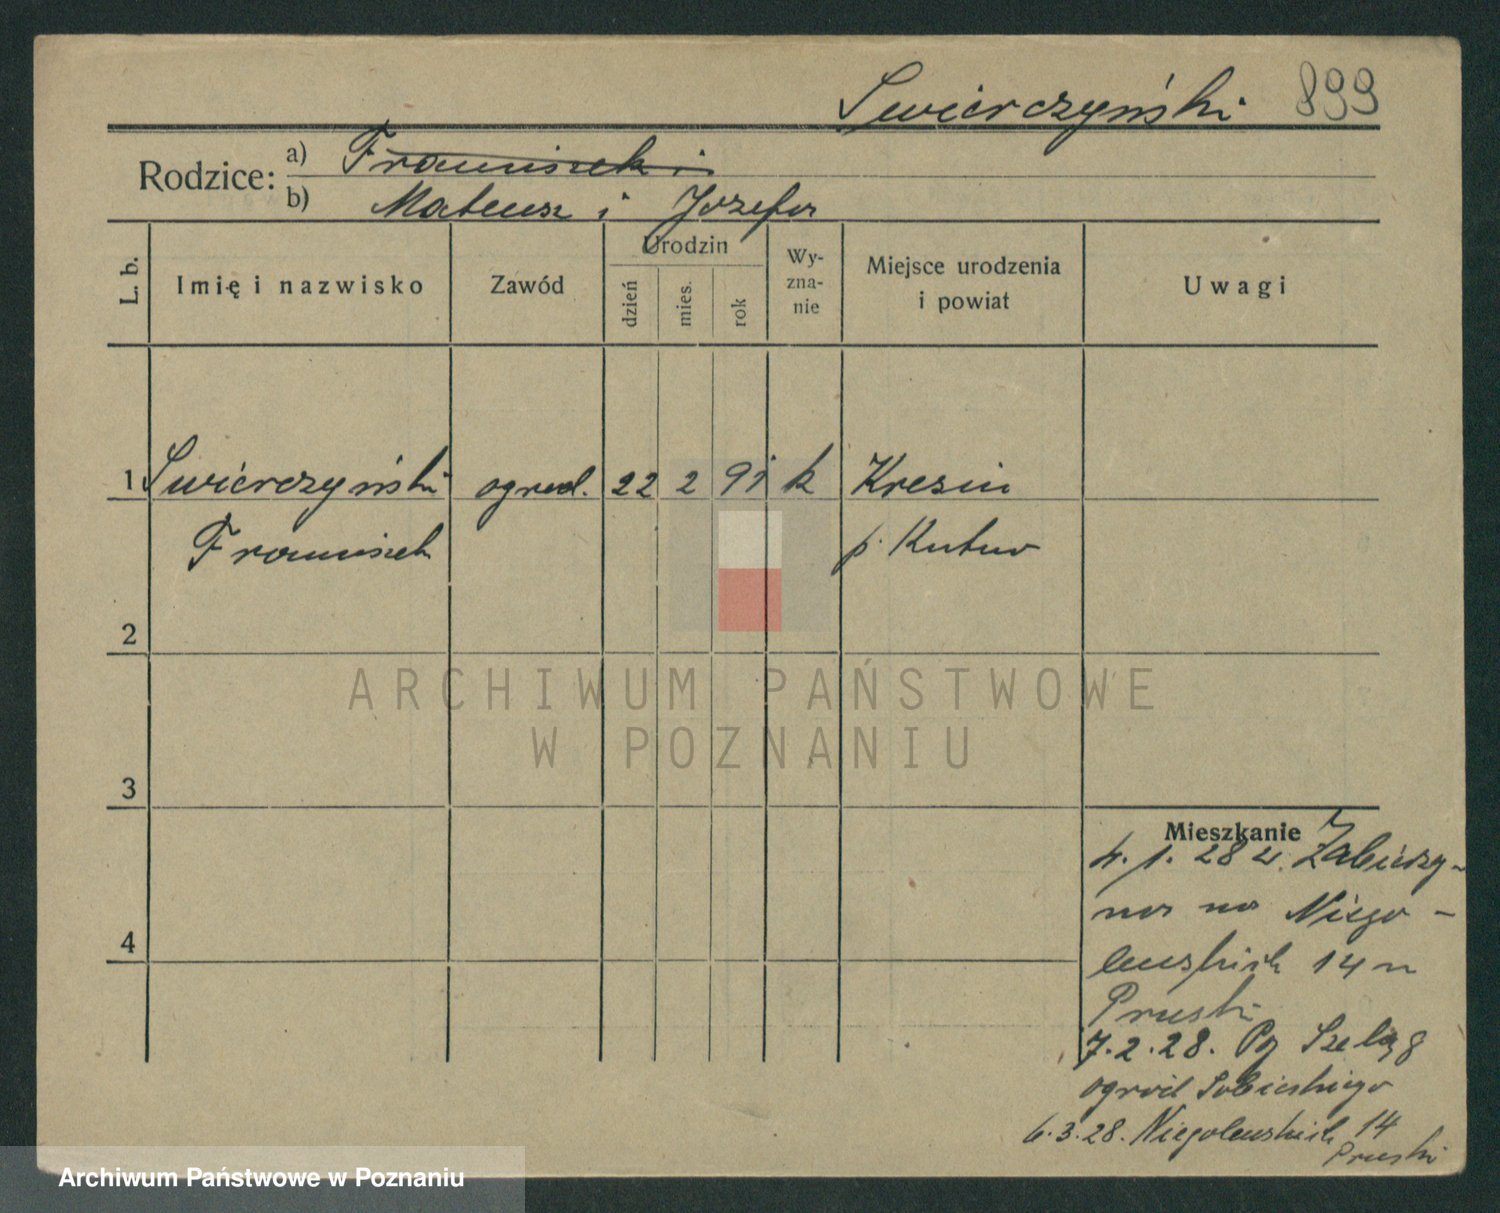 Swierczyński 899
Rodzice: a) Franciszek i
b) Mateusz i Józefa
L. b.
Imię i nazwisko
Zawód
Urodzin
dzień
mies.
rok
Wy-
zna-
nie
Miejsce urodzenia
i powiat
Uwagi
1 Swierczyński ogrod. 22 2 91 k Kresin
Franciszek p. Kutno
2
ARCHIWUM PAŃSTWOWE
W POZNANIU
3
Mieszkanie
4. 1. 28 z Zabiczy-
na na Niego-
lewskich 14 u
4
Pruski
7.2.28. Pg Szeląg
ogród Sobieskiego
6.3.28. Niegolewskich 14
Pruski
Archiwum Państwowe w Poznaniu